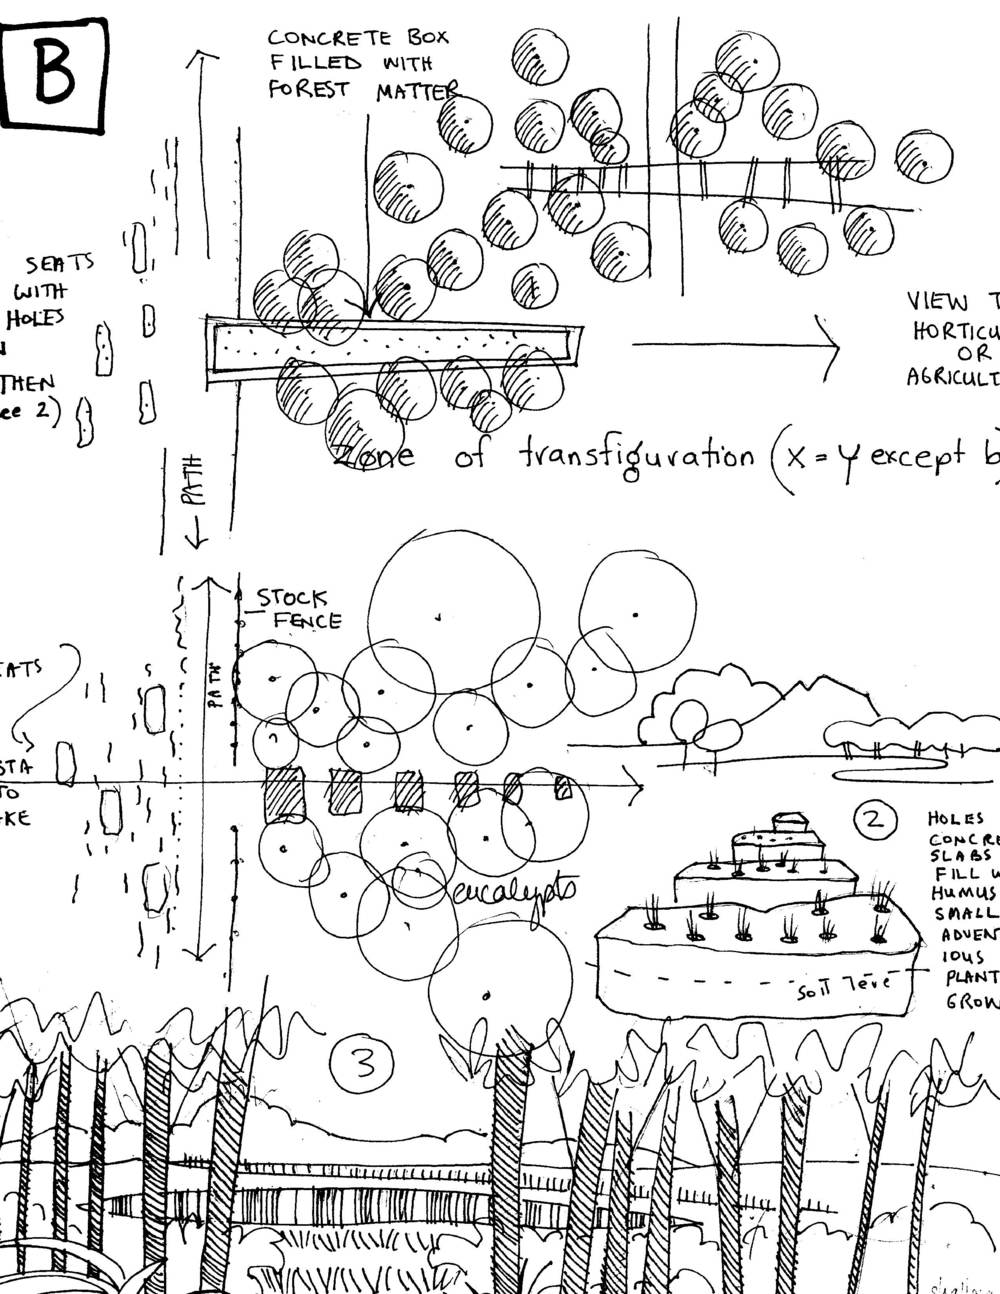 B
CONCRETE BOX
FILLED WITH
FOREST MATTER
SEATS
WITH
HOLES
THEN
ee 2)
VIEW T
HORTICU
OR
AGRICULT
Zone of transfiguration (X = Y except b
PATH
STOCK
FENCE
PATH
EATS
STA
TO
KE
eucalypts
2
HOLES
CONCRE
SLABS
FILL W
HUMUS
SMALL
ADVEN
IOUS
PLANT
GROW
soil leve
3